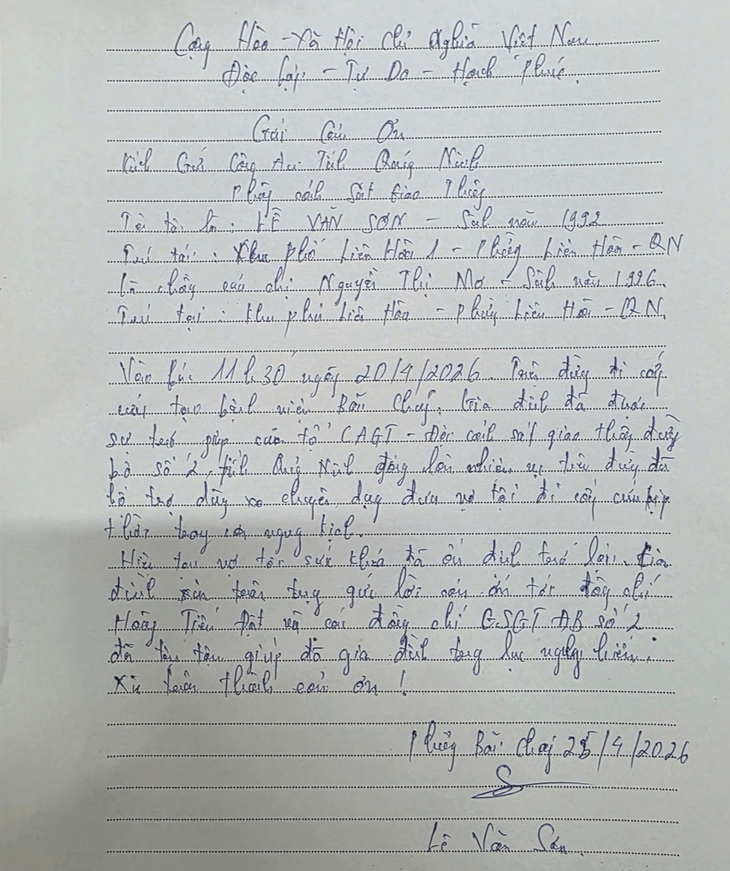 Cộng Hòa - Xã Hội Chủ Nghĩa Việt Nam
Độc Lập - Tự Do - Hạnh Phúc.
Gửi Cảm Ơn
Kính Gửi Công An Tỉnh Quảng Ninh
Phòng cảnh Sát Giao Thông
Tôi tên là: LÊ VĂN SƠN - Sinh năm 1992
Trú tại: Khu phố Liên Hòa 1 - Phường Liên Hòa - QN
là chồng của chị Nguyễn Thị Mơ - Sinh năm 1996.
Trú tại: Khu phố Liên Hòa - Phường Liên Hòa - QN.
Vào lúc 11h30 ngày 20/4/2026. Trên đường đi cấp
cứu tại bệnh viện Bãi Cháy. Gia đình đã được
sự trợ giúp của tổ CAGT - Đội cảnh sát giao thông đường
bộ số 2 tỉnh Quảng Ninh đang làm nhiệm vụ trên đường đã
hỗ trợ dùng xe chuyên dụng đưa vợ tôi đi cấp cứu kịp
thời trong cơn nguy kịch.
Hiện tại vợ tôi sức khỏe đã ổn định trở lại. Gia
đình xin trân trọng gửi lời cảm ơn tới đồng chí
Hoàng Tiến Đạt và các đồng chí CSGT ĐB số 2
đã tận tâm giúp đỡ gia đình trong lúc nguy hiểm.
Xin chân thành cảm ơn!
Phường Bãi Cháy 25/4/2026
Lê Văn Sơn